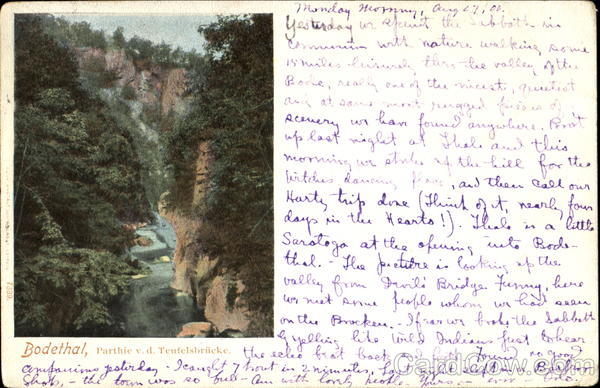 Monday Morning, Aug 27, 06.
Yesterday we spent the Sabbath in
communion with nature walking some
15 miles leisurely thro the valley of the
Bode, really one of the nicest, quietest
and at same most rugged pieces of
scenery we have found anywhere. Put
up last night at Thale and this
morning we strike up the hill for the
witches dancing place, and then call our
Hartz trip done (Think of it, nearly four
days in the Hearts!). Thale is a little
Saratoga at the opening into Bode-
thal. - The picture is looking up the
valley from Devil's Bridge. Funny, here
we met some people whom we had seen
on the Brocken. - I fear we broke the Sabbath
by yelling like wild Indians just to hear
the echo
7399
Bodethal, Parthie v. d. Teufelsbrücke.
companions yesterday - I caught 7 trout in 2 minutes,
shop, - the town was so full - Am with lovely people.
CardCow.com